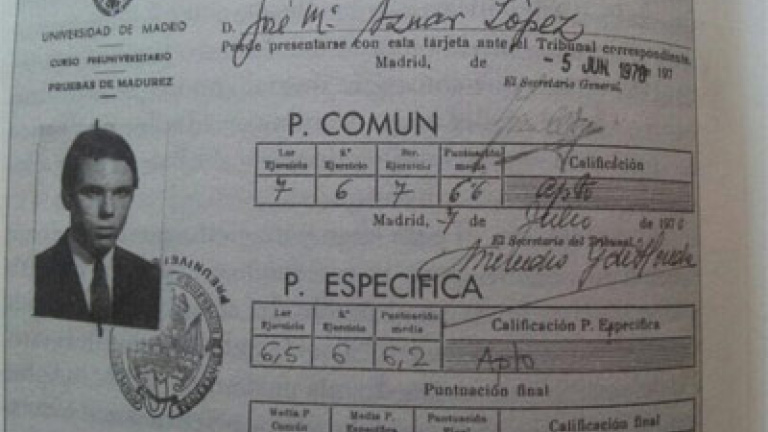 UNIVERSIDAD DE MADRID
CURSO PREUNIVERSITARIO
PRUEBAS DE MADUREZ
D. José Mª Aznar López
Puede presentarse con esta tarjeta ante el Tribunal correspondiente.
Madrid, de - 5 JUN 1970 197
El Secretario General,
P. COMUN
1.er Ejercicio 2.º Ejercicio 3er. Ejercicio Puntuación media Calificación
7 6 7 6'6 apto
Madrid, 7 de Julio de 1970
El Secretario del Tribunal,
PREUNIVE
P. ESPECIFICA
1.er Ejercicio 2.º Ejercicio Puntuación media Calificación P. Específica
6,5 6 6,2 Apto
Puntuación final
Media P. Común Media P. Específica Puntuación Final Calificación final